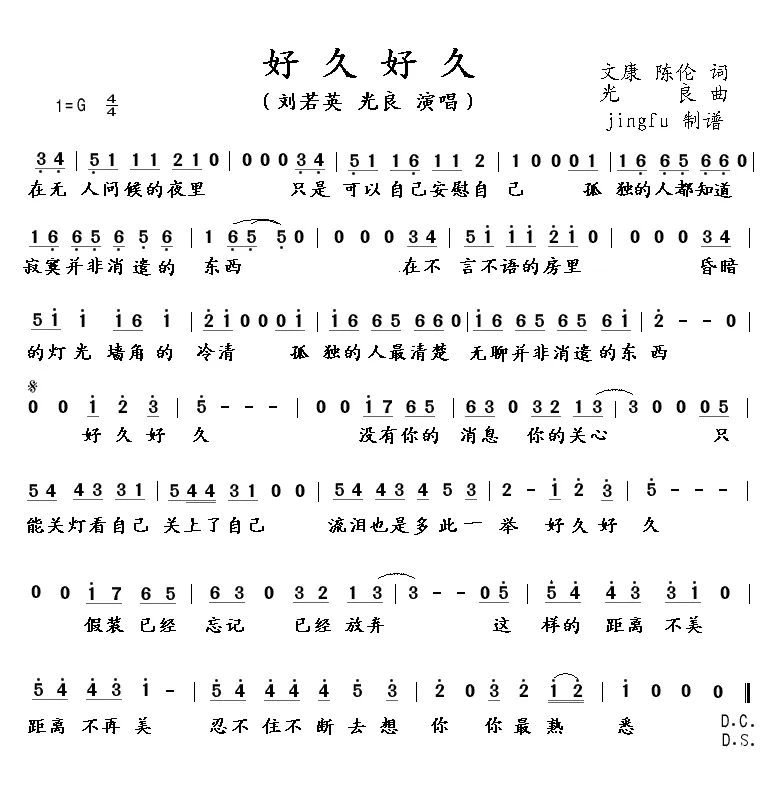 好久好久
(刘若英 光良 演唱)
文康 陈伦 词
光 良 曲
jingfu 制谱
1=G 4/4
3 4 | 5 1 1 1 2 1 0 | 0 0 0 3 4 | 5 1 1 6 1 1 2 | 1 0 0 0 0 1 | 1 6 6 5 6 6 0 |
在无 人问候的夜里 只是 可以自己安慰自 己 孤 独的人都知道
1 6 6 5 6 5 6 | 1 6 5 5 0 | 0 0 0 3 4 | 5 1 1 1 2 1 0 | 0 0 0 3 4 |
寂寞并非消遣的 东西 在不 言不语的房里 昏暗
5 1 1 1 6 1 | 2 1 0 0 0 0 1 | 1 6 6 5 6 6 0 | 1 6 6 5 6 5 6 1 | 2 - - 0 |
的灯光 墙角的 冷清 孤 独的人最清楚 无聊并非消遣的东西
0 0 1 2 3 | 5 - - - | 0 0 1 7 6 5 | 6 3 0 3 2 1 3 | 3 0 0 0 5 |
好久好 久 没有你的 消息 你的关心 只
5 4 4 3 3 1 | 5 4 4 3 1 0 0 | 5 4 4 3 4 5 3 | 2 - 1 2 3 | 5 - - - |
能关灯看自己 关上了自己 流泪也是多此一 举 好久好 久
0 0 1 7 6 5 | 6 3 0 3 2 1 3 | 3 - - 0 5 | 5 4 4 3 3 1 0 |
假装 已经 忘记 已经 放弃 这 样的 距离 不美
5 4 4 3 1 - | 5 4 4 4 4 5 3 | 2 0 3 2 1 2 | 1 0 0 0 ‖
距离 不再 美 忍不 住不 断去 想 你 你 最熟 悉 D.C.
D.S.